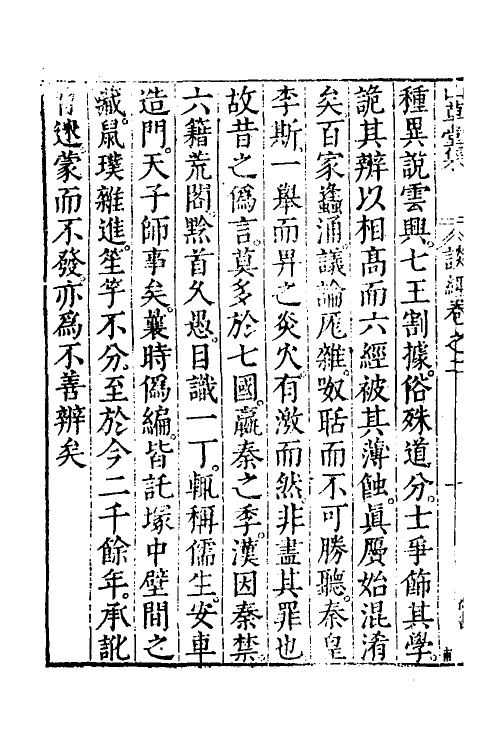 山草堂集　談經卷之二　十
種異說雲興。七王割據。俗殊道分。士爭飾其學。
詭其辯以相高而六經被其薄蝕。眞贋始混淆
矣百家蠭涌。議論厖雜。呶聒而不可勝聽。秦皇
李斯一舉而畀之炎火。有激而然。非盡其罪也
故昔之僞言。莫多於七國。嬴秦之季。漢因秦禁。
六籍荒閣。黔首久愚。目識一丁。輒稱儒生。安車
造門。天子師事矣。曩時僞編。皆託塚中壁間之
藏。鼠璞雜進。笙竽不分。至於今二千餘年。承訛
迷蒙而不發。亦爲不善辯矣